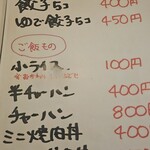 餃子5コ 400円
ゆで餃子5コ 450円
ご飯もの
小ライス 100円
半チャーハン 400円
チャーハン 800円
ミニ焼肉丼 400